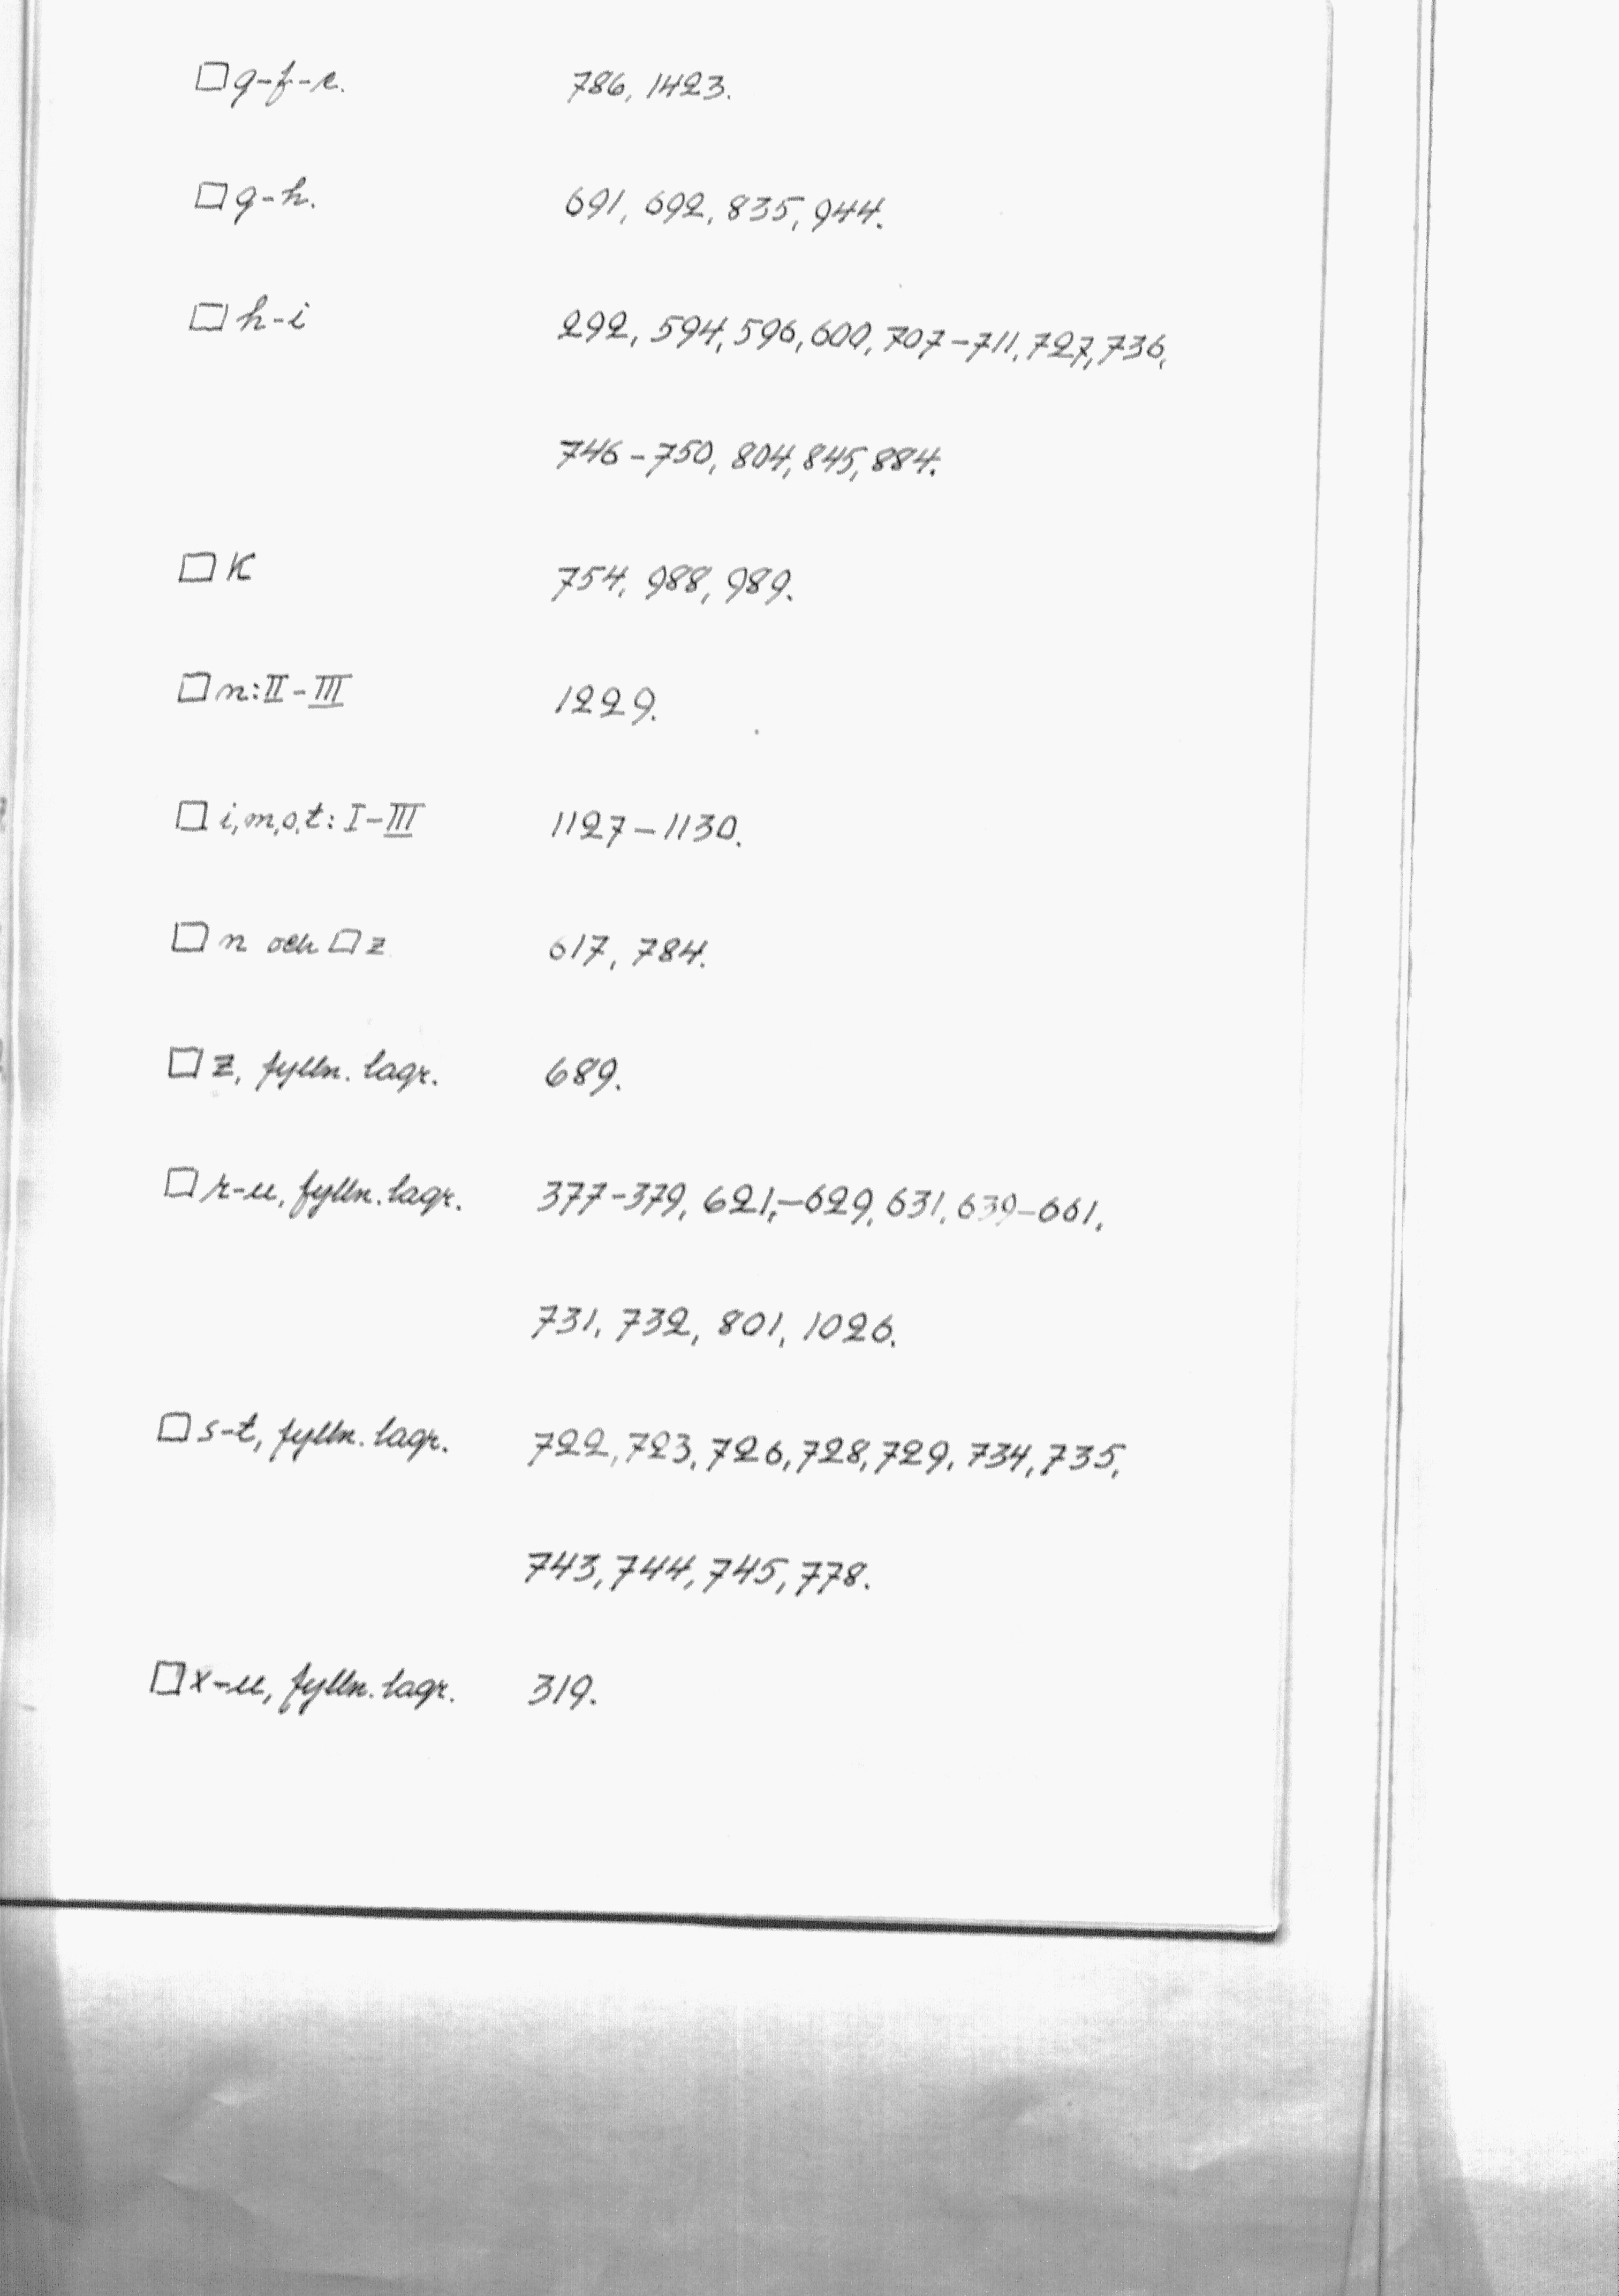 □ g-f-e. 786, 1423.
□ g-h. 691, 692, 835, 944.
□ h-i 292, 594, 596, 600, 707-711, 727, 736,
746-750, 804, 845, 884.
□ K 754, 988, 989.
□ n: II-III 1229.
□ i, m, o, t: I-III 1127-1130.
□ n och □ z 617, 784.
□ z, fylln. lagr. 689.
□ r-u, fylln. lagr. 377-379, 621,-629, 631, 639-661,
731, 732, 801, 1026.
□ s-t, fylln. lagr. 722, 723, 726, 728, 729, 734, 735,
743, 744, 745, 778.
□ x-u, fylln. lagr. 319.